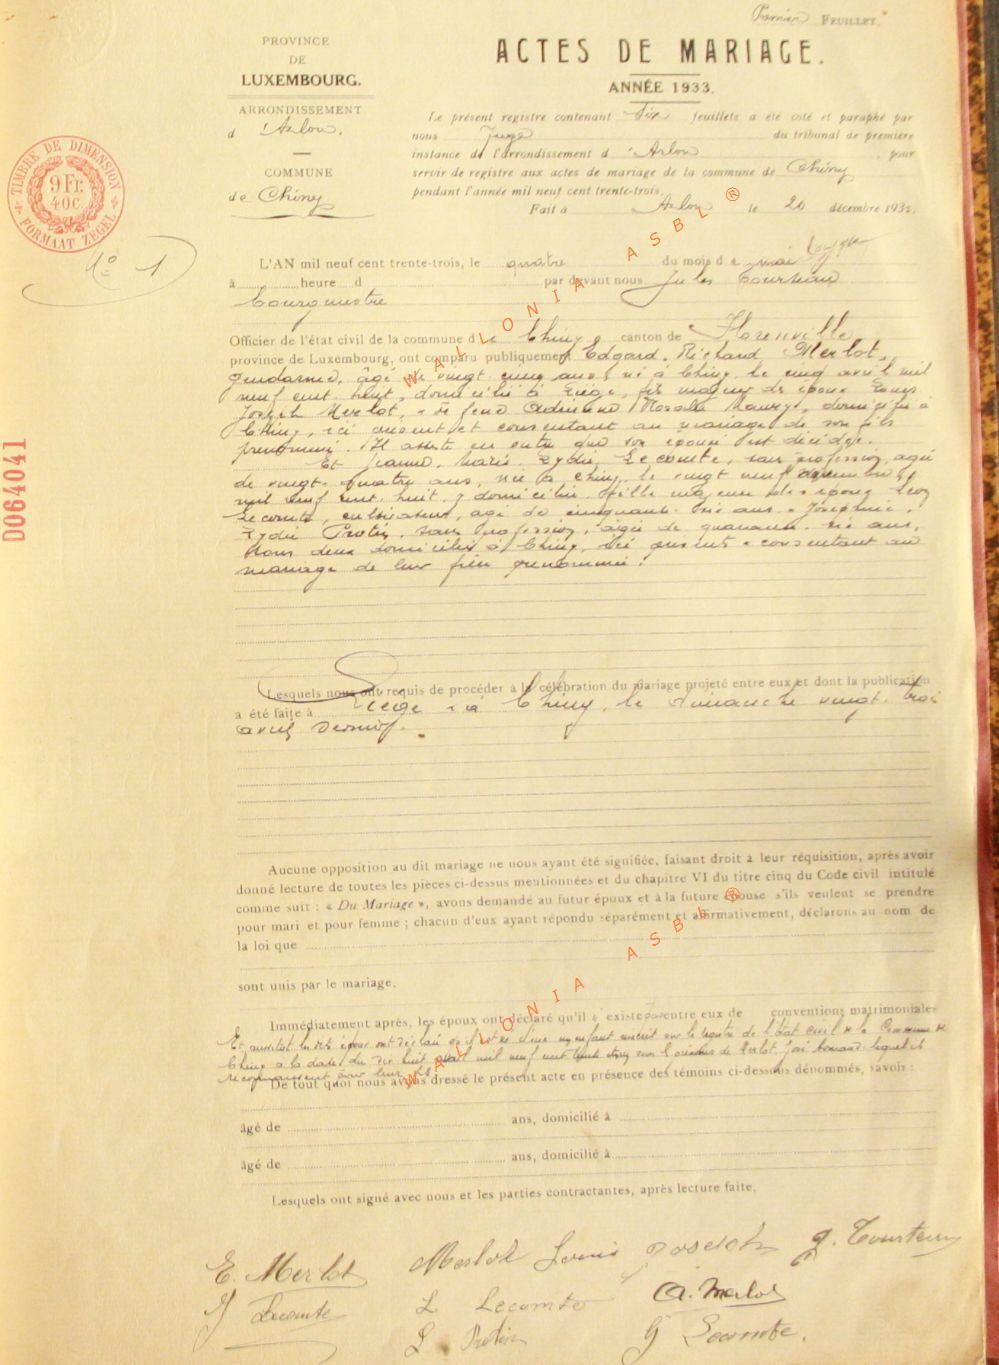 Premier FEUILLET.
PROVINCE
DE
LUXEMBOURG.
ARRONDISSEMENT
d'Arlon.
COMMUNE
de Chiny
TIMBRE DE DIMENSION
9 Fr.
40c.
FORMAAT ZEGEL
N° 1
D064041
ACTES DE MARIAGE.
ANNÉE 1933.
Le présent registre contenant six feuillets a été coté et paraphé par
nous Juge du tribunal de première
instance de l'arrondissement d'Arlon, pour
servir de registre aux actes de mariage de la commune de Chiny
pendant l'année mil neuf cent trente-trois.
Fait à Arlon le 20 décembre 1932.
WALLONIA ASBL ®
L'AN mil neuf cent trente-trois, le quatre du mois de mai
à heure d par devant nous Jules
bourgmestre
Officier de l'état civil de la commune de Chiny, canton de Florenville
province de Luxembourg, ont comparu publiquement Edgard, Richard Merlot,
gendarme, âgé de vingt cinq ans, né à Chiny le cinq avril mil
neuf cent huit, domicilié à Liège, fils majeur des époux Louis
Joseph Merlot, et feue Rosalie, domicilié à
Chiny, ici présent et consentant au mariage de son fils
prénommé. Il atteste en outre que son épouse est décédée.
Et Jeanne, Marie, Lydie Lecomte, sans profession, âgée
de vingt-quatre ans, née à Chiny, le vingt neuf
mil neuf cent huit, y domiciliée, fille majeure des époux Léon
Lecomte, cultivateur, âgé de cinquante six ans et Joséphine,
Lydie Protin, sans profession, âgée de quarante six ans,
tous deux domiciliés à Chiny, ici présents et consentant au
mariage de leur fille prénommée.
Lesquels nous ont requis de procéder à la célébration du mariage projeté entre eux et dont la publication
a été faite à Liège et à Chiny, le dimanche vingt-trois
avril dernier.
Aucune opposition au dit mariage ne nous ayant été signifiée, faisant droit à leur réquisition, après avoir
donné lecture de toutes les pièces ci-dessus mentionnées et du chapitre VI du titre cinq du Code civil intitulé
comme suit : « Du Mariage », avons demandé au futur époux et à la future épouse s'ils veulent se prendre
pour mari et pour femme ; chacun d'eux ayant répondu séparément et affirmativement, déclarons au nom de
la loi que
sont unis par le mariage.
WALLONIA ASBL ®
Immédiatement après, les époux ont déclaré qu'il existe entre eux de conventions matrimoniales
Et aussitôt les dits époux ont déclaré qu'il est né d'eux un enfant inscrit sur le registre de l'état civil de la Commune de
Chiny à la date du dix huit mil neuf cent trente cinq sous le prénoms de Merlot José Armand lequel ils
reconnaissent pour leur fils
De tout quoi nous avons dressé le présent acte en présence des témoins ci-dessous dénommés, savoir :
âgé de ans, domicilié à
âgé de ans, domicilié à
Lesquels ont signé avec nous et les parties contractantes, après lecture faite.
E. Merlot Merlot Louis Joseph J.
J Lecomte L Lecomte A. Merlot
L Protin G Lecomte.